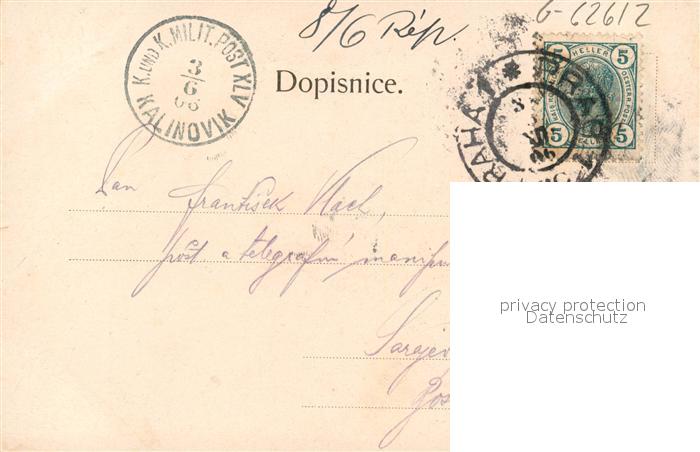 8/6 Rép.
G-62612
K. UND K. MILIT. POST XLV
3
6
06
KALINOVIK
5 HELLER 5
5 HELLER 5
PRAHA 1 * PRAG 1
Dopisnice.
Pan
František Vlach,
pošt a telegrafní manipu
Sarajev
Bos
privacy protection
Datenschutz